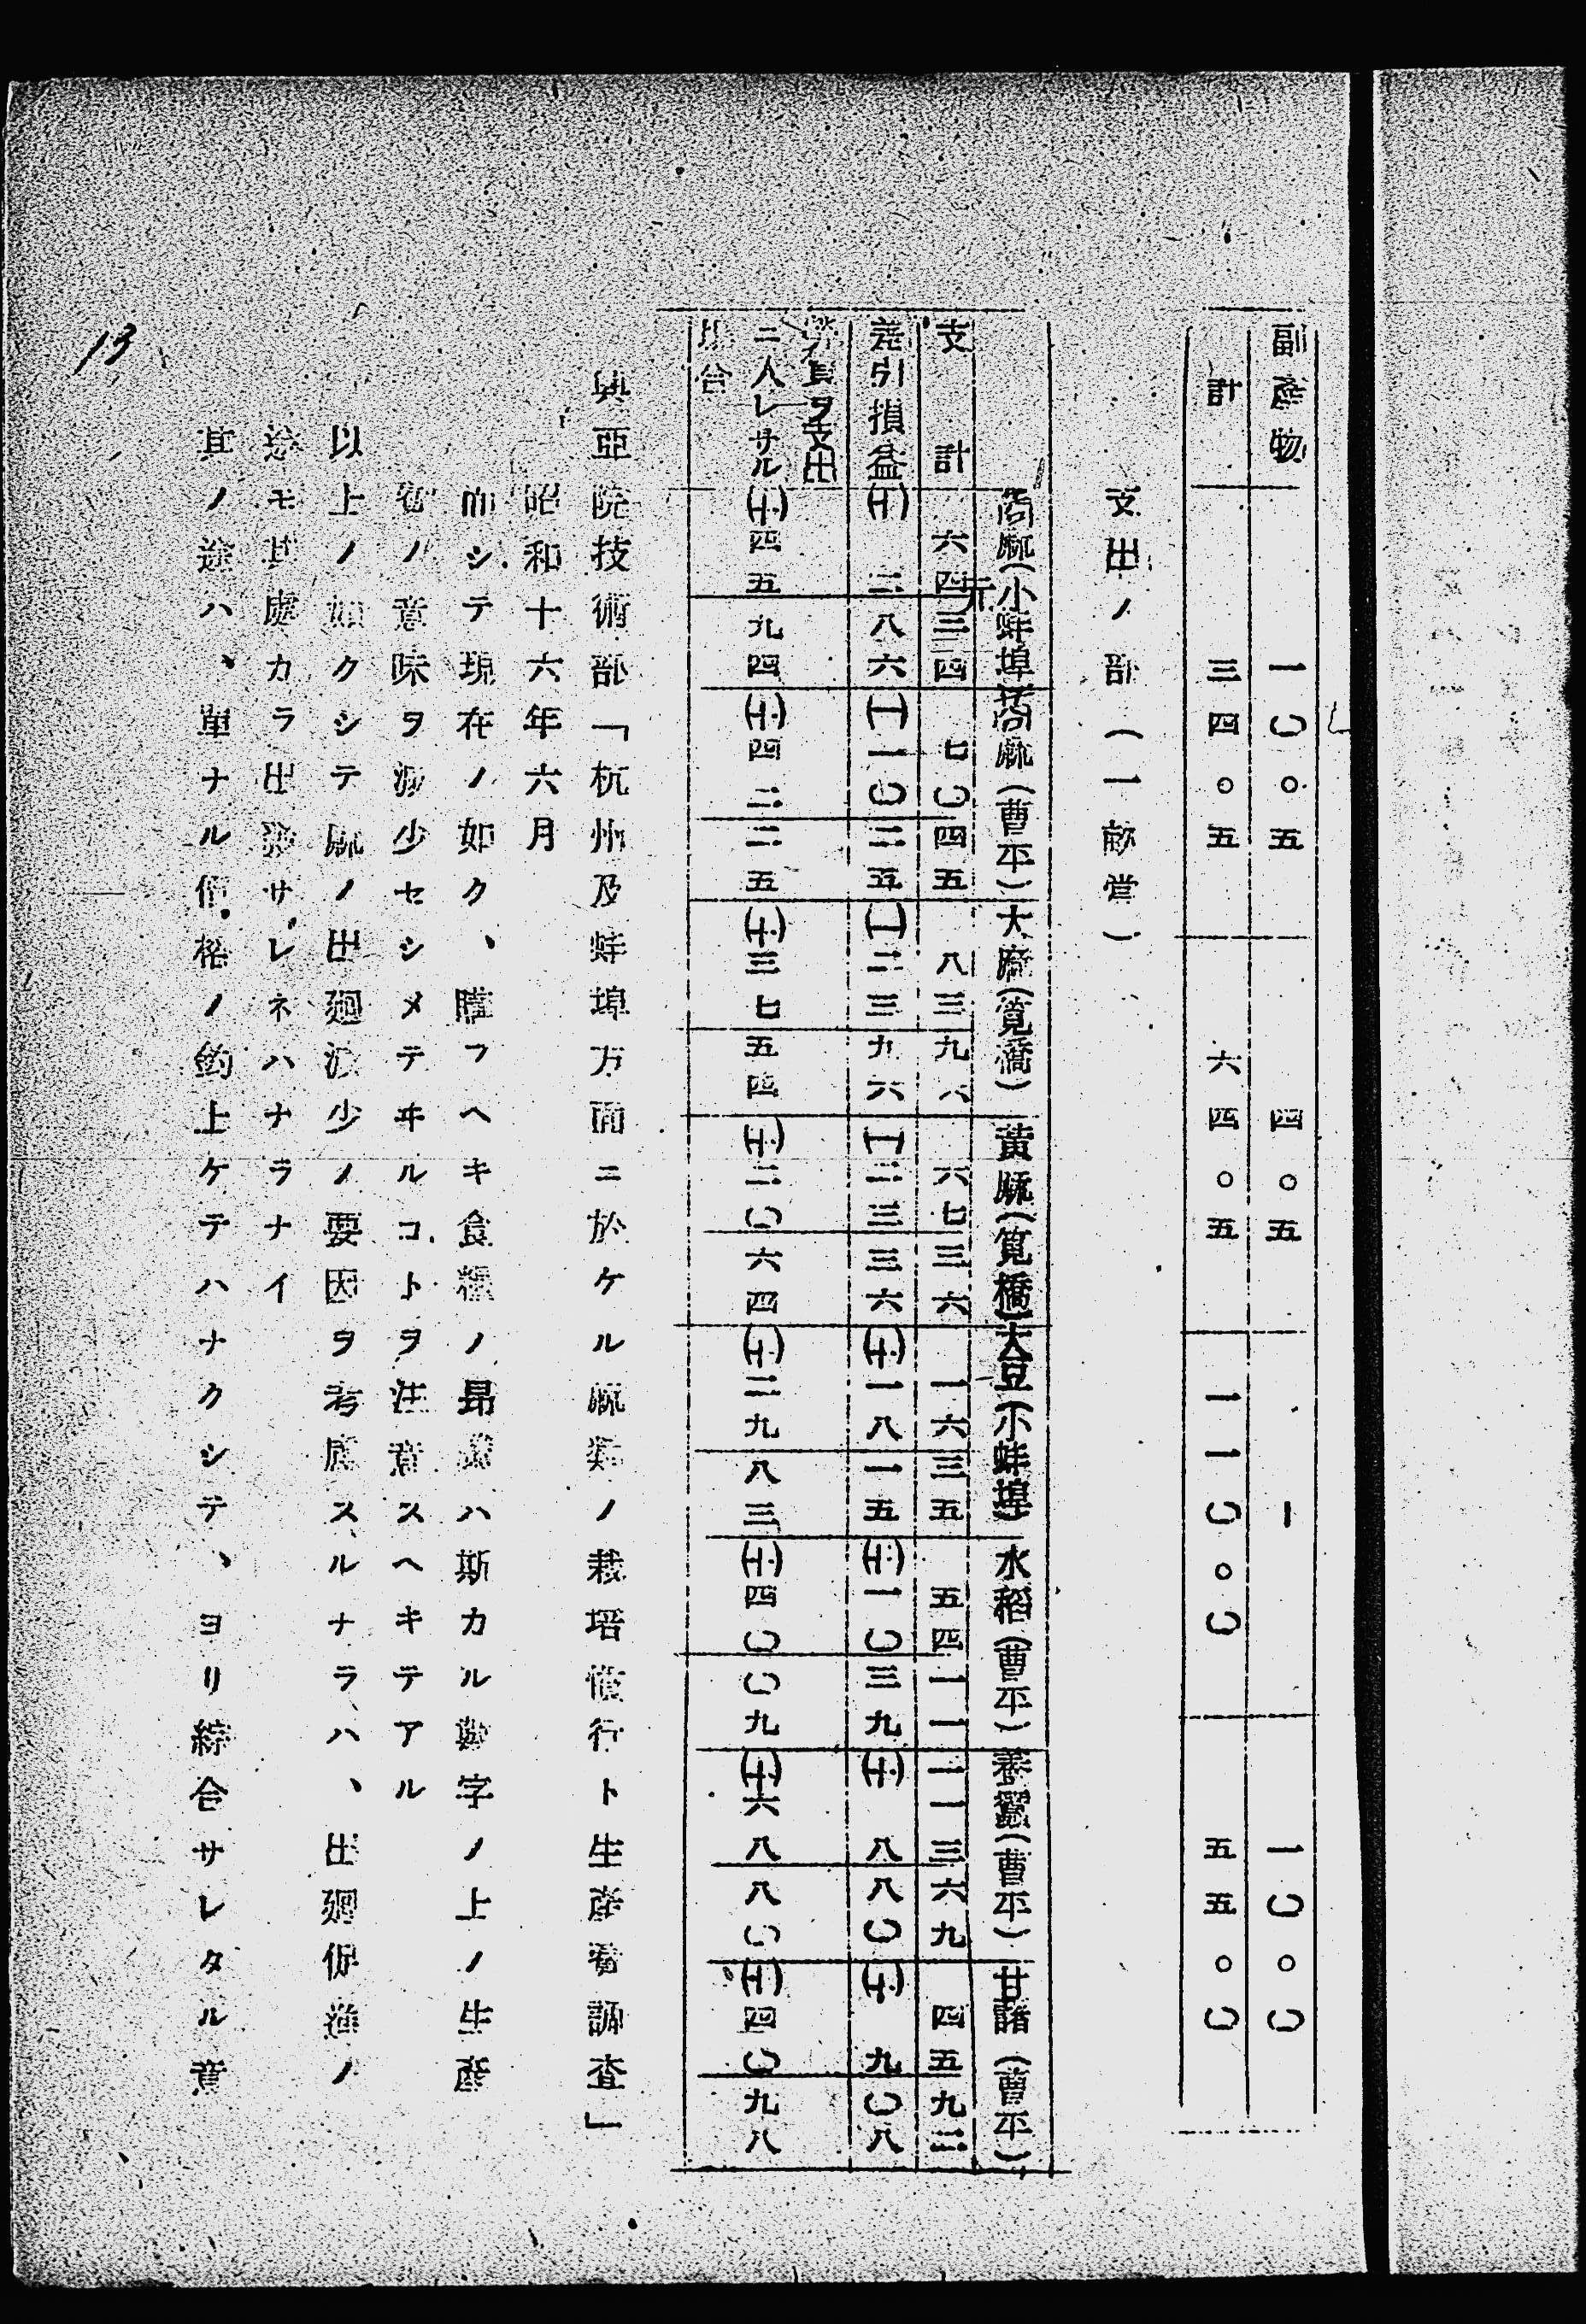 副産物 一〇。五 四。五 ー 一〇。〇
計 三四。五 六四。五 一一〇。〇 五五。〇
支出ノ部(一畝當)
洋麻(小蚌埠) 洋麻(曹平) 大麻(筧橋) 黄麻(筧橋) 大豆(小蚌埠) 水稻(曹平) 養蠶(曹平) 甘藷(曹平)
支計 元 六四三四 七〇四五 八三九六 六七三六 一六三五 五四一一 一一三六九 四五九二
差引損益 (+)二八六 (-)一〇三五 (-)二三九六 (-)二三三六 (+)一八一五 (+)一〇三九 (+)八八〇 (+)九〇八
勞賃ヲ支出
ニ入レサル (+)四五九四 (+)四二二五 (+)三七五四 (+)二〇六四 (+)二九八三 (+)四〇〇九 (+)六八八〇 (+)四〇九八
場合
興亞院技術部「杭州及蚌埠方面ニ於ケル麻類ノ栽培慣行ト生産費調査」
昭和十六年六月
而シテ現在ノ如ク、購フヘキ食糧ノ昂騰ハ斯カル數字ノ上ノ生産
費ノ意味ヲ減少セシメテヰルコトヲ注意スヘキテアル
以上ノ如クシテ麻ノ出廻減少ノ要因ヲ考慮スルナラハ、出廻促進ノ
途モ其處カラ出發サレネハナラナイ
其ノ途ハ、單ナル價格ノ釣上ケテハナクシテ、ヨリ綜合サレタル意
13